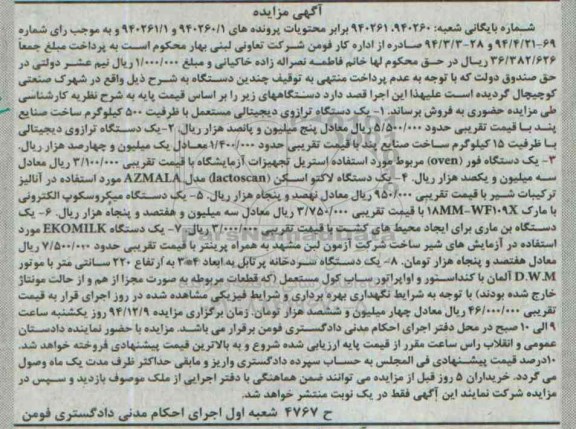 آگهی مزایده
شماره بایگانی شعبه: ۹۴۰۲۶۰، ۹۴۰۲۶۱ برابر محتویات پرونده های ۹۴۰۲۶۰/۱ و ۹۴۰۲۶۱/۱ و به موجب رای شماره
۶۹-۹۴/۴/۲۱ و ۲۸-۹۴/۳/۳ صادره از اداره کار فومن شرکت تعاونی لبنی بهار محکوم است به پرداخت مبلغ جمعاً
۳۶/۳۸۲/۶۲۶ ریال در حق محکوم لها خانم فاطمه نصراله زاده خاکیانی و مبلغ ۱/۰۰۰/۰۰۰ ریال نیم عشر دولتی در
حق صندوق دولت که با توجه به عدم پرداخت منتهی به توقیف چندین دستگاه به شرح ذیل واقع در شهرک صنعتی
کوچیچال گردیده است علیهذا این اجرا قصد دارد دستگاههای زیر را بر اساس قیمت پایه به شرح نظریه کارشناسی
طی مزایده حضوری به فروش برساند: ۱- یک دستگاه ترازوی دیجیتالی مستعمل با ظرفیت ۵۰۰ کیلوگرم ساخت صنایع
پند با قیمت تقریبی حدود ۵/۵۰۰/۰۰۰ ریال معادل پنج میلیون و پانصد هزار ریال. ۲- یک دستگاه ترازوی دیجیتالی
با ظرفیت ۱۵ کیلوگرم ساخت صنایع پند با قیمت تقریبی حدود ۱/۴۰۰/۰۰۰ معادل یک میلیون و چهارصد هزار ریال.
۳- یک دستگاه فور (oven) مربوط مورد استفاده استریل تجهیزات آزمایشگاه با قیمت تقریبی ۳/۱۰۰/۰۰۰ ریال معادل
سه میلیون و یکصد هزار ریال. ۴- یک دستگاه لاکتو اسکن (lactoscan) مدل AZMALA مورد استفاده در آنالیز
ترکیبات شیر با قیمت تقریبی ۹۵۰/۰۰۰ ریال معادل نهصد و پنجاه هزار ریال. ۵- یک دستگاه میکروسکوپ الکترونی
با مارک ۱۸MM-WF۱۰۹X با قیمت تقریبی ۳/۷۵۰/۰۰۰ ریال معادل سه میلیون و هفتصد و پنجاه هزار ریال. ۶- یک
دستگاه بن ماری برای ایجاد محیط های کشت با قیمت تقریبی ۳/۰۰۰/۰۰۰ ریال ۷- یک دستگاه EKOMILK مورد
استفاده در آزمایش های شیر ساخت شرکت آزمون لبن مشهد به همراه پرینتر با قیمت تقریبی حدود ۷/۵۰۰/۰۰۰ ریال
معادل هفتصد و پنجاه هزار تومان. ۸- یک دستگاه سردخانه پرتابل به ابعاد ۴*۳ به ارتفاع ۲۲۰ سانتی متر با موتور
D.W.M آلمان با کندانسور و اواپراتور ساب کول مستعمل (که قطعات مربوطه به صورت مجزا از هم و از حالت مونتاژ
خارج شده بودند) با توجه به شرایط نگهداری بهره برداری و شرایط فیزیکی مشاهده شده در روز اجرای قرار به قیمت
تقریبی ۴۶/۰۰۰/۰۰۰ ریال معادل چهار میلیون و ششصد هزار تومان. زمان برگزاری مزایده ۹۴/۱۲/۹ روز یکشنبه ساعت
۹ الی ۱۰ صبح در محل دفتر اجرای احکام مدنی دادگستری فومن برقرار می باشد. مزایده با حضور نماینده دادستان
عمومی و انقلاب راس ساعت مقرر از قیمت پایه ارزیابی شده شروع و به بالاترین قیمت پیشنهادی فروخته خواهد شد.
۱۰درصد قیمت پیشنهادی فی المجلس به حساب سپرده دادگستری واریز و مابقی حداکثر ظرف مدت یک ماه وصول
می گردد. خریداران ۵ روز قبل از مزایده می توانند ضمن هماهنگی با دفتر اجرایی از ملک موصوف بازدید و سپس در
مزایده شرکت نمایند این آگهی فقط در یک نوبت منتشر خواهد شد.
ح ۴۷۶۷ شعبه اول اجرای احکام مدنی دادگستری فومن